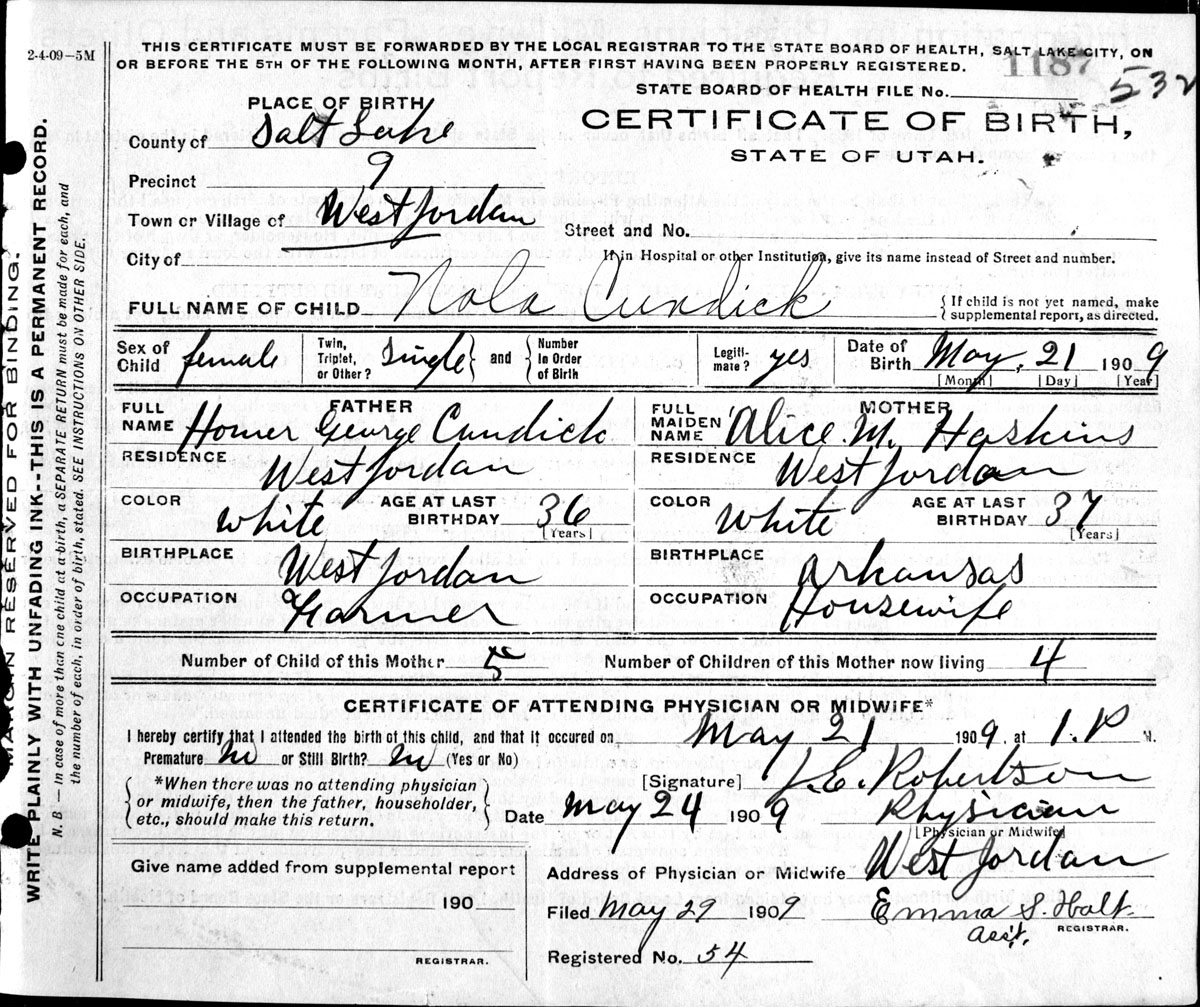 2-4-09-5M
THIS CERTIFICATE MUST BE FORWARDED BY THE LOCAL REGISTRAR TO THE STATE BOARD OF HEALTH, SALT LAKE CITY, ON
OR BEFORE THE 5TH OF THE FOLLOWING MONTH, AFTER FIRST HAVING BEEN PROPERLY REGISTERED.
1187
532
STATE BOARD OF HEALTH FILE No.
CERTIFICATE OF BIRTH,
STATE OF UTAH.
PLACE OF BIRTH
County of Salt Lake
Precinct 9
Town or Village of West Jordan
Street and No.
City of
If in Hospital or other Institution, give its name instead of Street and number.
FULL NAME OF CHILD Nola Cundick
{If child is not yet named, make
supplemental report, as directed.
Sex of Child female
Twin, Triplet, or Other? single
and
Number in Order of Birth
Legiti-mate? yes
Date of Birth May, 21 1909
[Month] [Day] [Year]
FATHER
FULL NAME Homer George Cundick
RESIDENCE West Jordan
COLOR white
AGE AT LAST BIRTHDAY 36
[Years]
BIRTHPLACE West Jordan
OCCUPATION Farmer
MOTHER
FULL MAIDEN NAME Alice M. Haskins
RESIDENCE West Jordan
COLOR White
AGE AT LAST BIRTHDAY 37
[Years]
BIRTHPLACE Arkansas
OCCUPATION Housewife
Number of Child of this Mother 5
Number of Children of this Mother now living 4
CERTIFICATE OF ATTENDING PHYSICIAN OR MIDWIFE*
I hereby certify that I attended the birth of this child, and that it occured on May 21 1909, at 1.P M.
Premature no or Still Birth? no (Yes or No)
*When there was no attending physician
or midwife, then the father, householder,
etc., should make this return.
[Signature] Robertson
Date May 24 1909
Physician
[Physician or Midwife]
Address of Physician or Midwife West Jordan
Give name added from supplemental report
190
REGISTRAR.
Filed May 29 1909
Emma S. Holt
Asst.
REGISTRAR.
Registered No. 54
MARGIN RESERVED FOR BINDING.
WRITE PLAINLY WITH UNFADING INK--THIS IS A PERMANENT RECORD.
N. B.—In case of more than one child at a birth, a SEPARATE RETURN must be made for each, and
the number of each, in order of birth, stated. SEE INSTRUCTIONS ON OTHER SIDE.